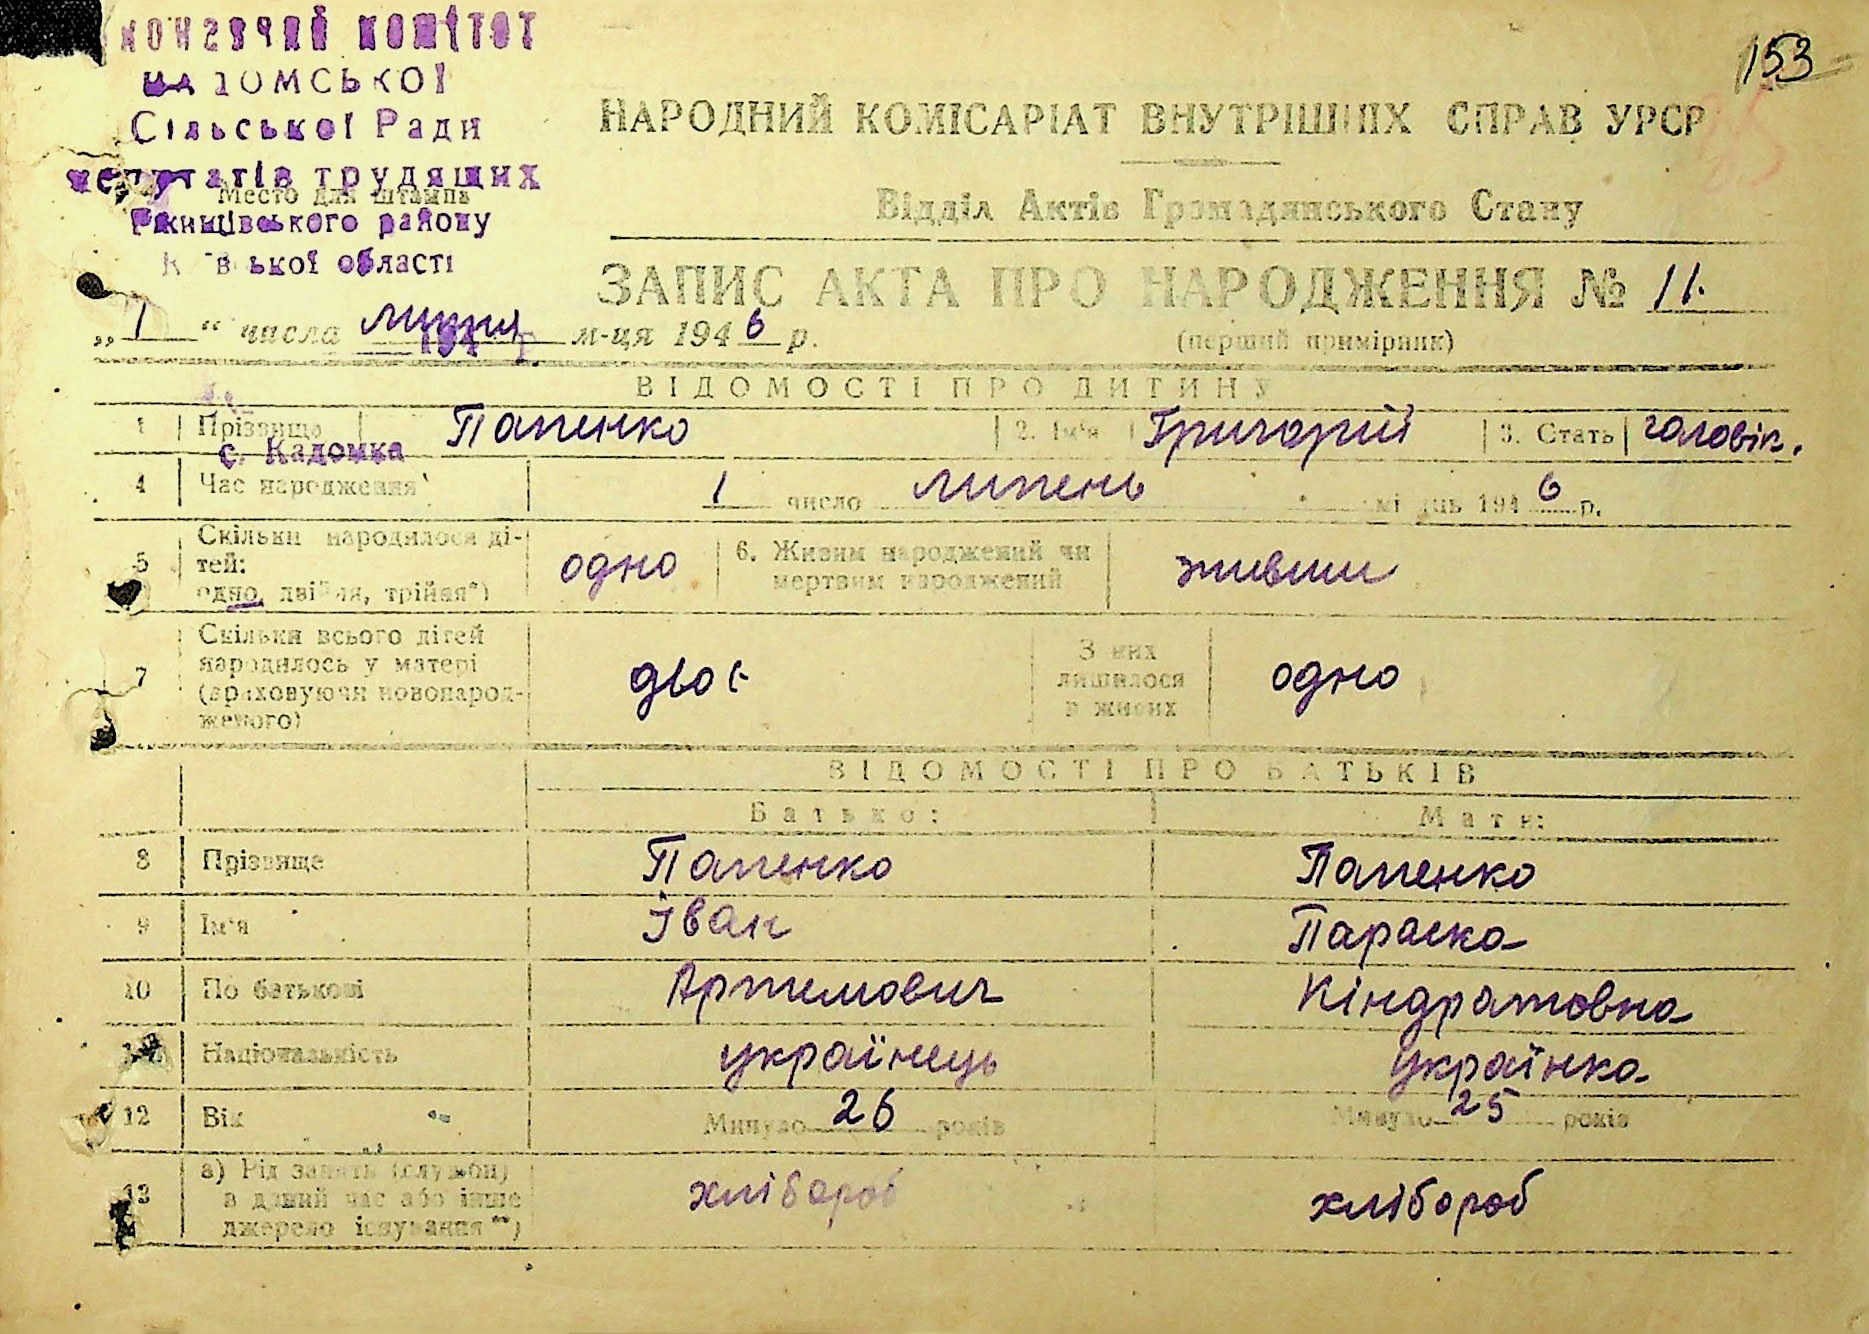 153
КОМІТЕТ
КАДОМСЬКОЇ
Сільської Ради
депутатів трудящих
Место для штампа
Ржищівського району
Київської області
НАРОДНИЙ КОМІСАРІАТ ВНУТРІШНІХ СПРАВ УРСР
Відділ Актів Громадянського Стану
ЗАПИС АКТА ПРО НАРОДЖЕННЯ № 11.
(перший примірник)
„ 1 “ числа липня м-ця 1946 р.
194 р.
ВІДОМОСТІ ПРО ДИТИНУ
1 Прізвище Папенко 2. Ім'я Григорій 3. Стать чоловіч.
с. Кадомка
4 Час народження 1 число липень місяць 1946 р.
5 Скільки народилося ді-
тей:
одно, двійня, трійня*) одно 6. Живим народжений чи
мертвим народжений живим
7 Скільки всього дітей
народилось у матері
(враховуючи новонарод-
женого) двоє З них
лишилося
в живих одно
ВІДОМОСТІ ПРО БАТЬКІВ
Батько: Мати:
8 Прізвище Папенко Папенко
9 Ім'я Іван Параска
10 По батькові Артемович Кіндратовна
11 Національність українець українка
12 Вік Минуло 26 років Минуло 25 років
13 а) Рід занять (служби)
в даний час або інше
джерело існування**) хлібороб хлібороб